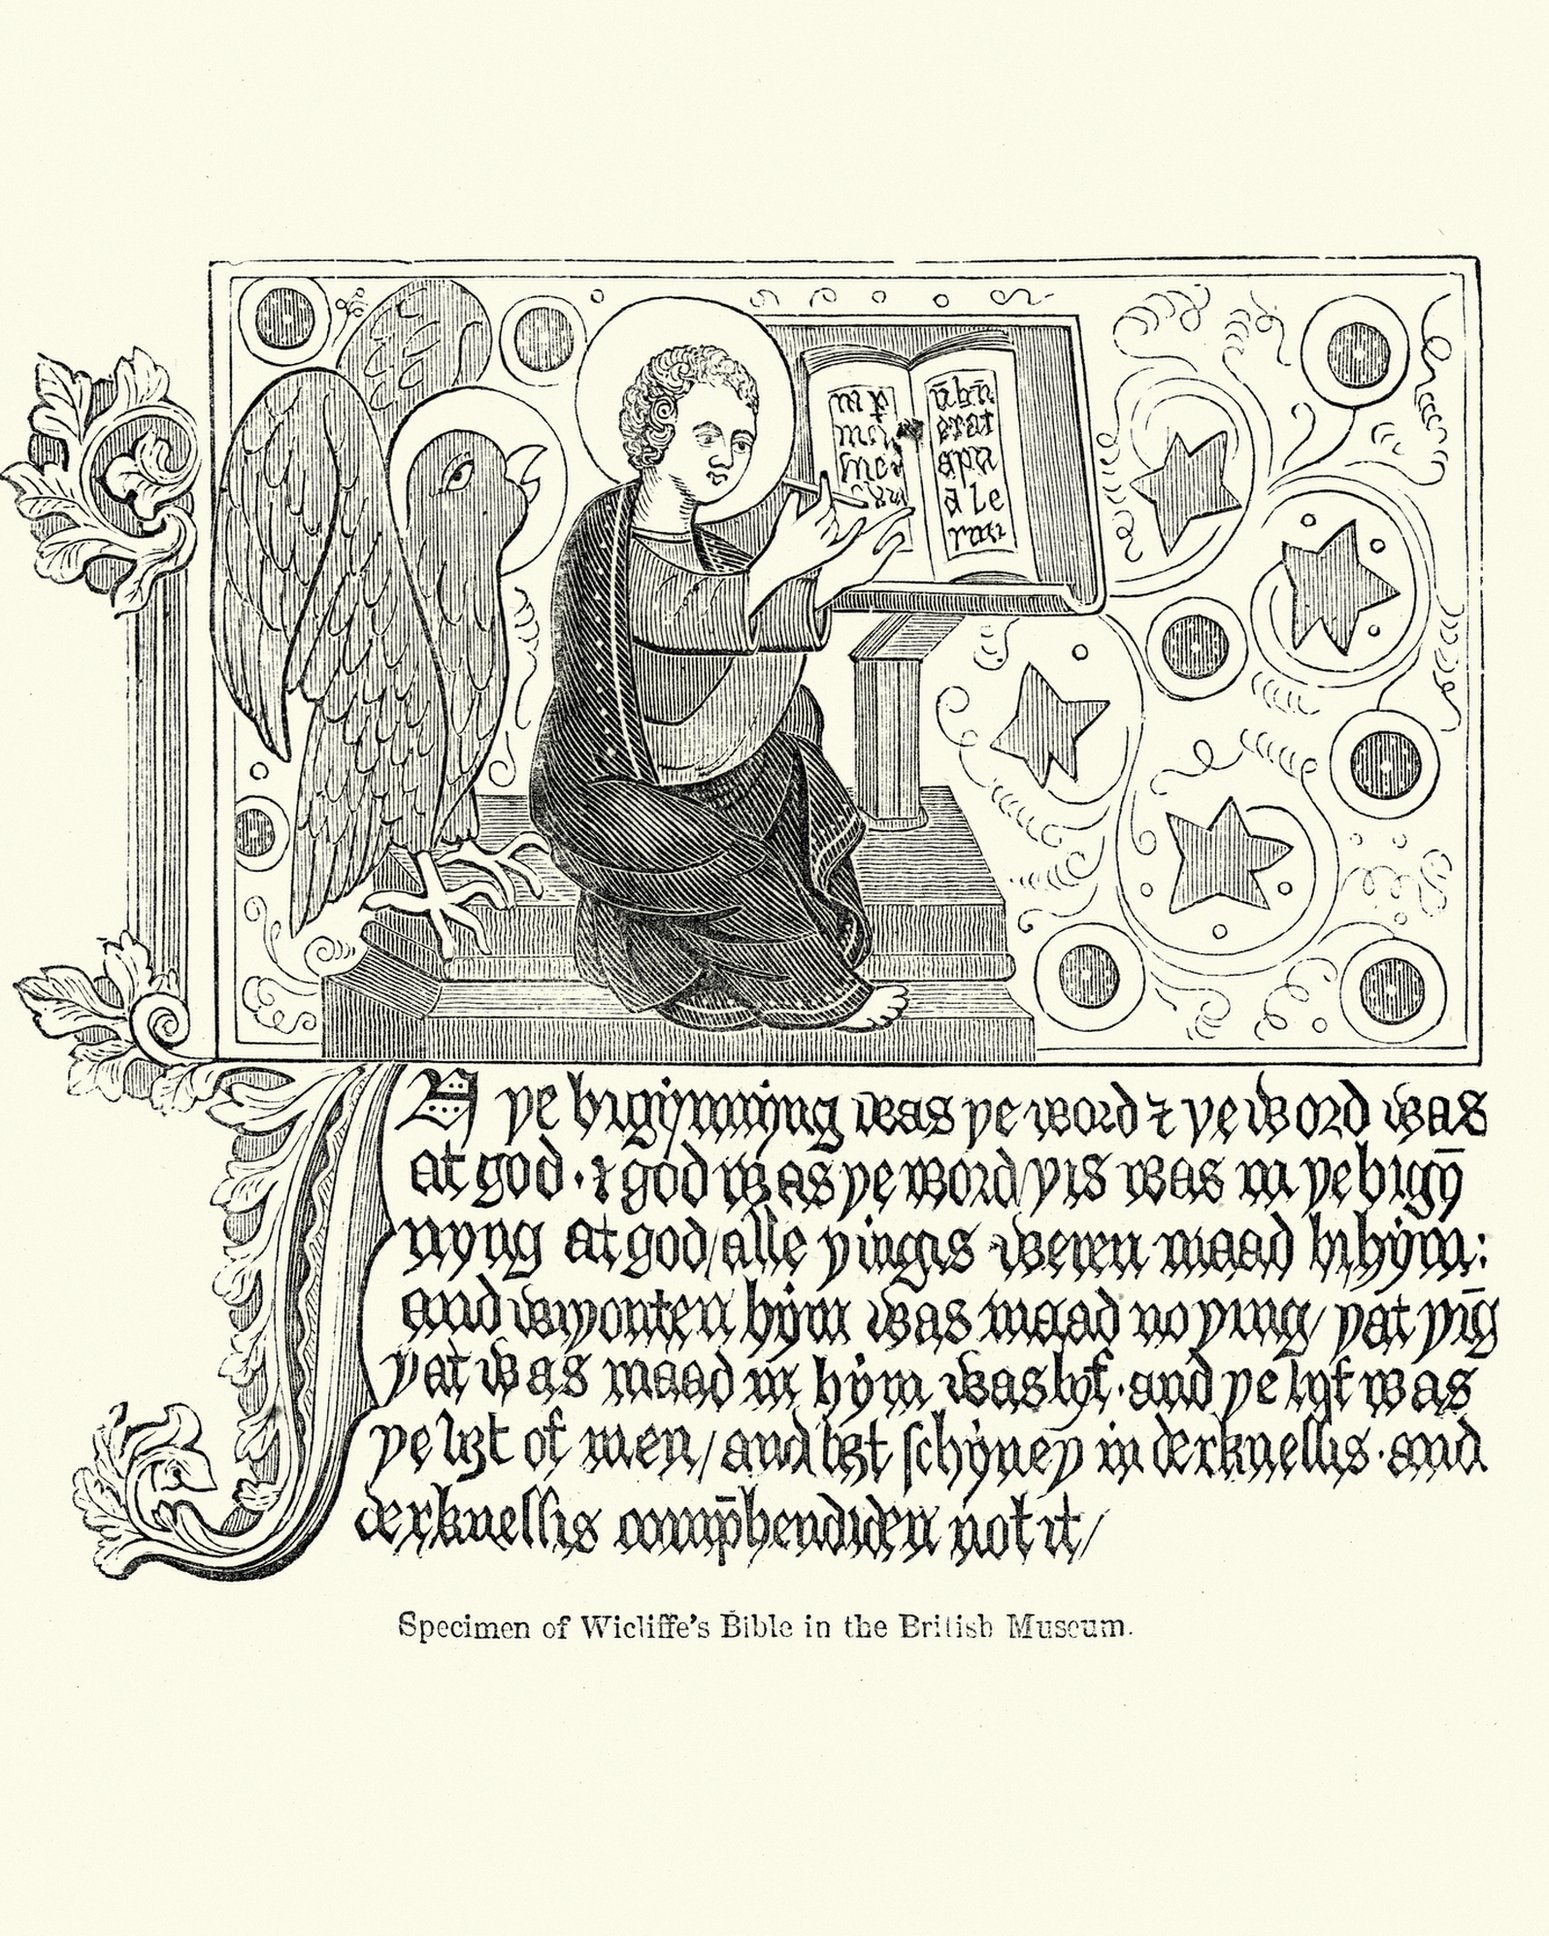 m p̄
ūbū
erat
apu
a le
IN ye bigẏnnẏng was ye word ⁊ ye word was
at god · ⁊ god was ye word/ yis was in ye bigȳ
nyng at god/ alle yingis weren maad bi hẏm:
and wiyouten hẏm was maad no ying/ yat yīg
yat was maad in hẏm was lyf · and ye lyf was
ye liȝt of men/ and liȝt schẏney in derknessis · and
derknessis comp̄hendiden not it/
Specimen of Wicliffe's Bible in the British Museum.